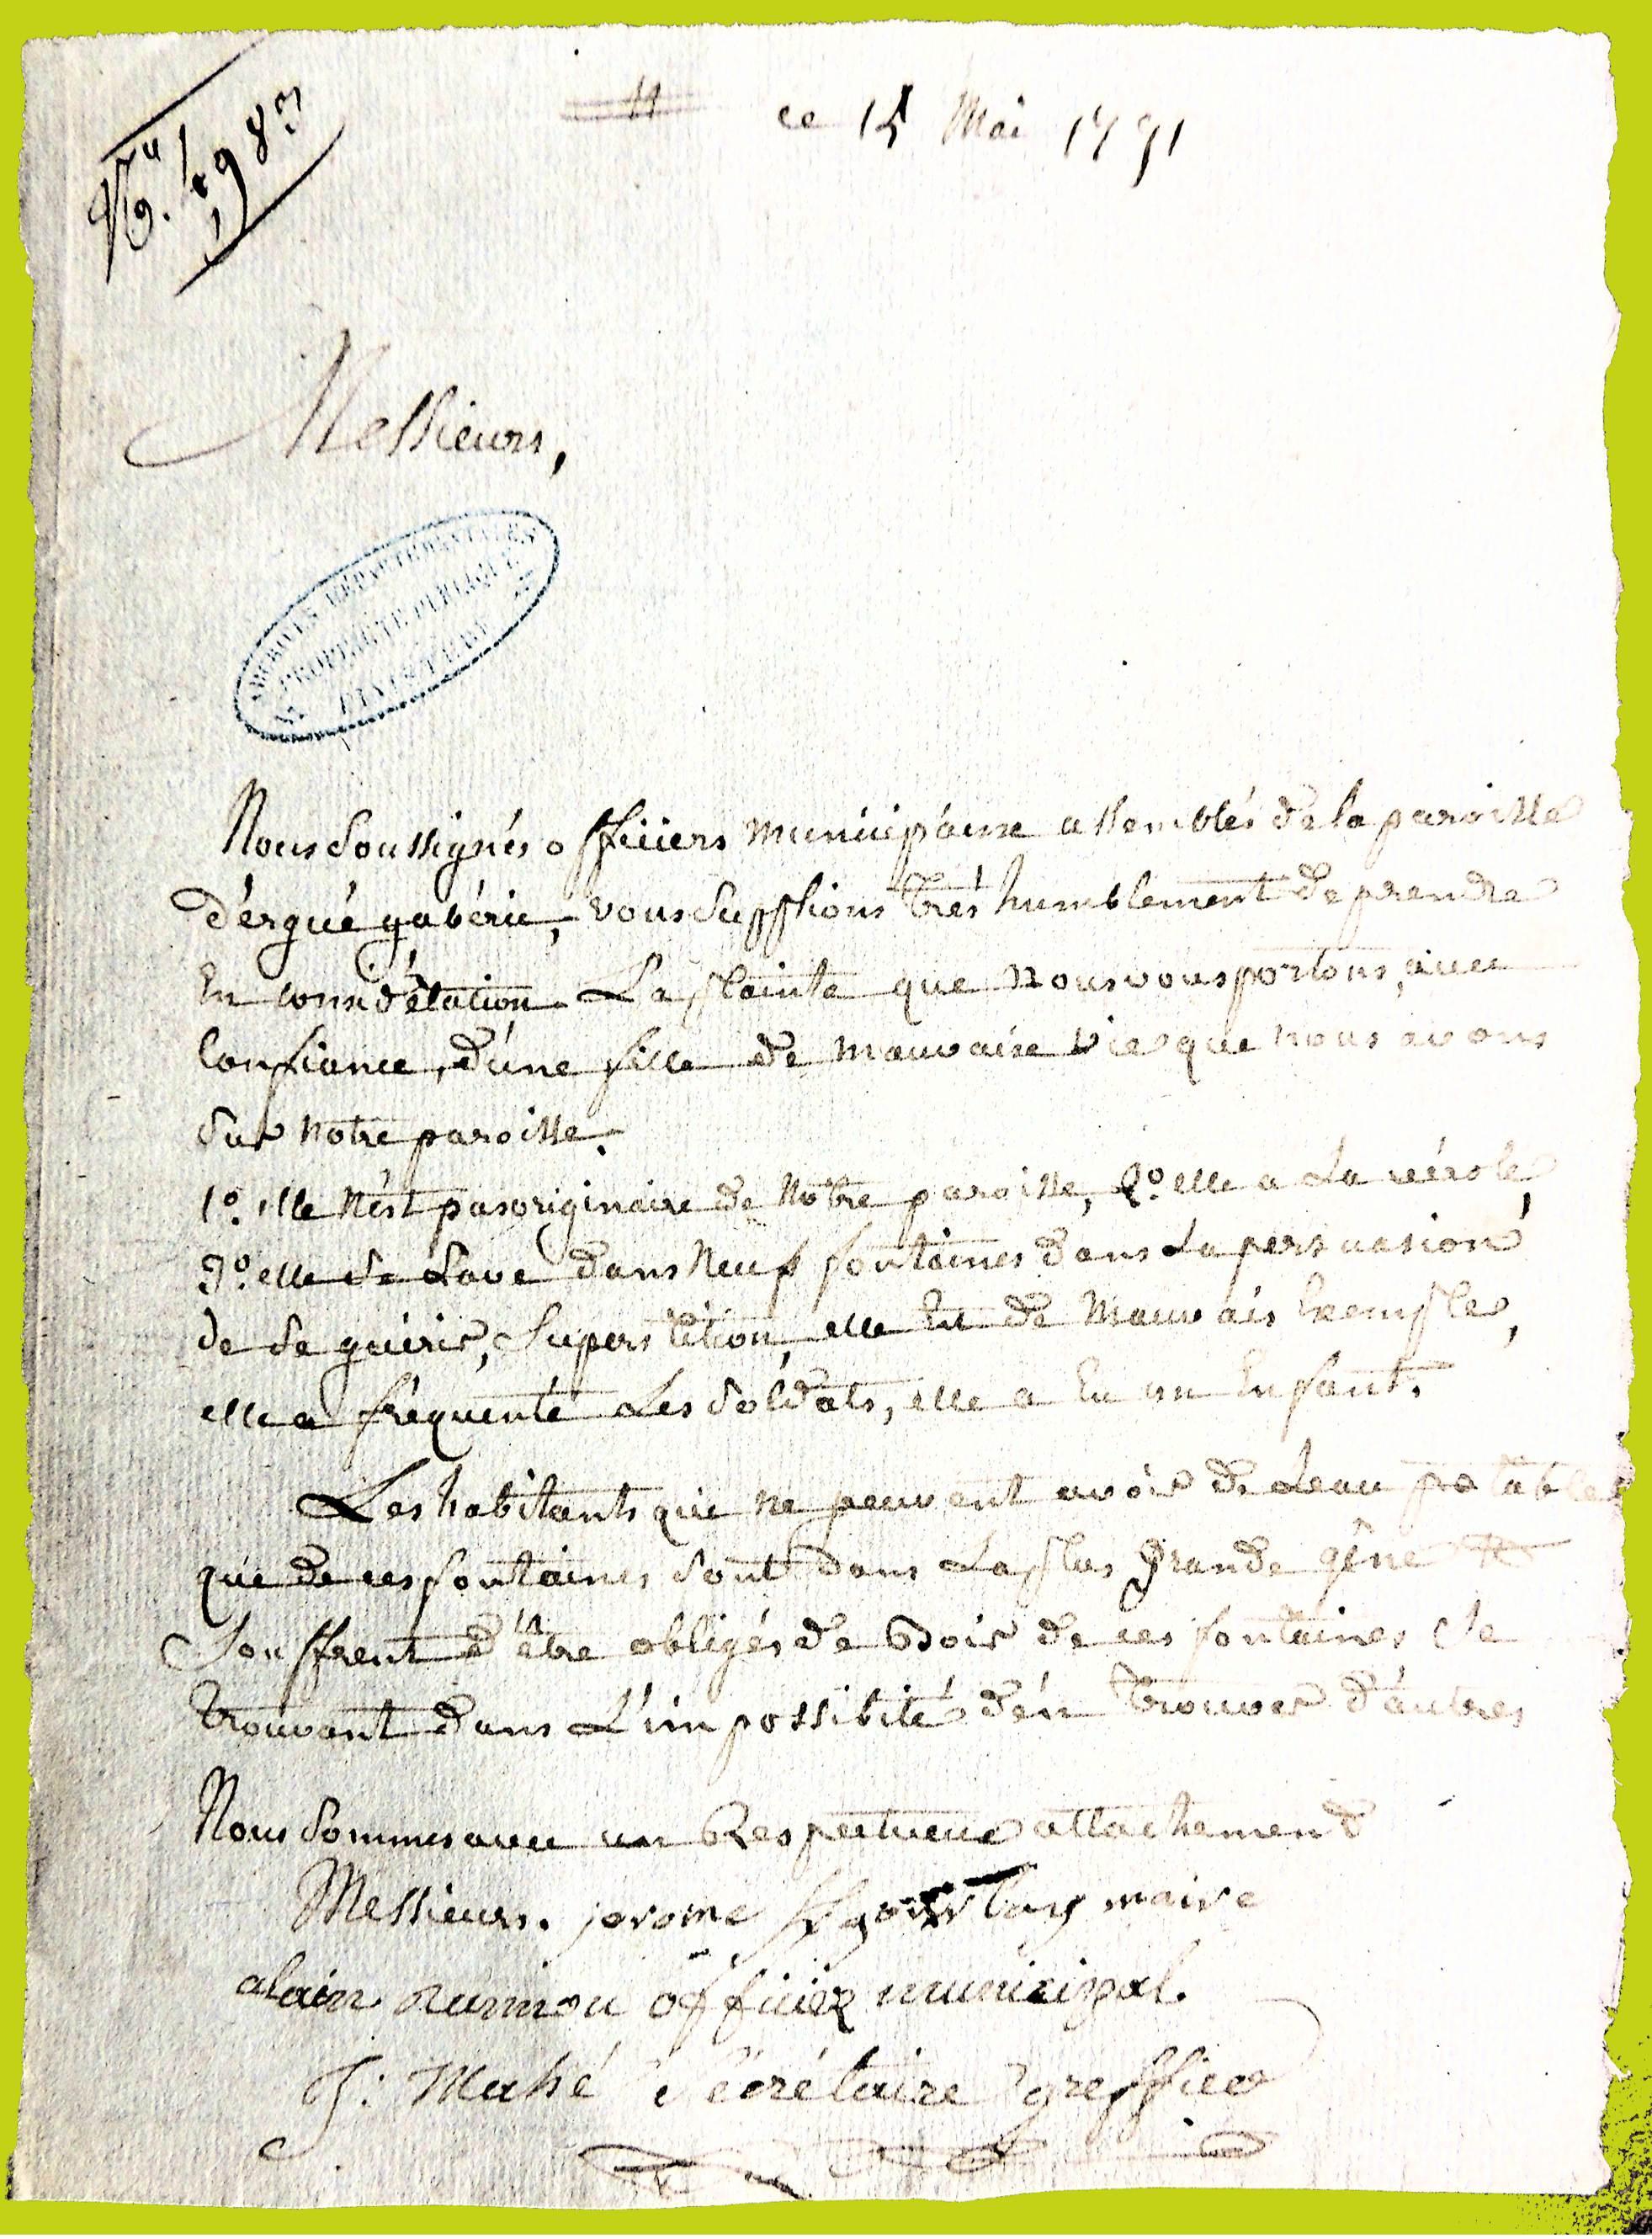 ce 15 Mai 1791
Messieurs,
ARCHIVES DÉPARTEMENTALES
PROPRIÉTÉ PUBLIQUE
FINISTÈRE
Nous Soussignés officiers municipaux assemblés de la paroisse
d'ergué gabéric, vous Supplions trés humblement de prendre
En considération La plainte que nous vous portons, avec
Confiance, d'une fille de mauvaise vie que nous avons
Sur notre paroisse.
1º. elle n'est pas originaire de notre paroisse, 2º. elle a La vérole,
3º. elle Se Lave dans neuf fontaines dans La persuasion
de Se guérir, Superstition, elle Est de Mauvais Exemple,
elle a fréquenté Les Soldats, elle a Eu un Enfant.
Les habitants qui ne peuvent avoir de Leau potable
que de ces fontaines Sont dans La plus grande gêne &
Souffrent d'être obligés de Boir de ces fontaines Se
trouvant dans L'impossibité d'en trouver d'autres
Nous Sommes avec un Respectueux attachement
Messieurs. jerome maire
alain rumou officier municipal.
J: Mahé Sécrétaire greffier